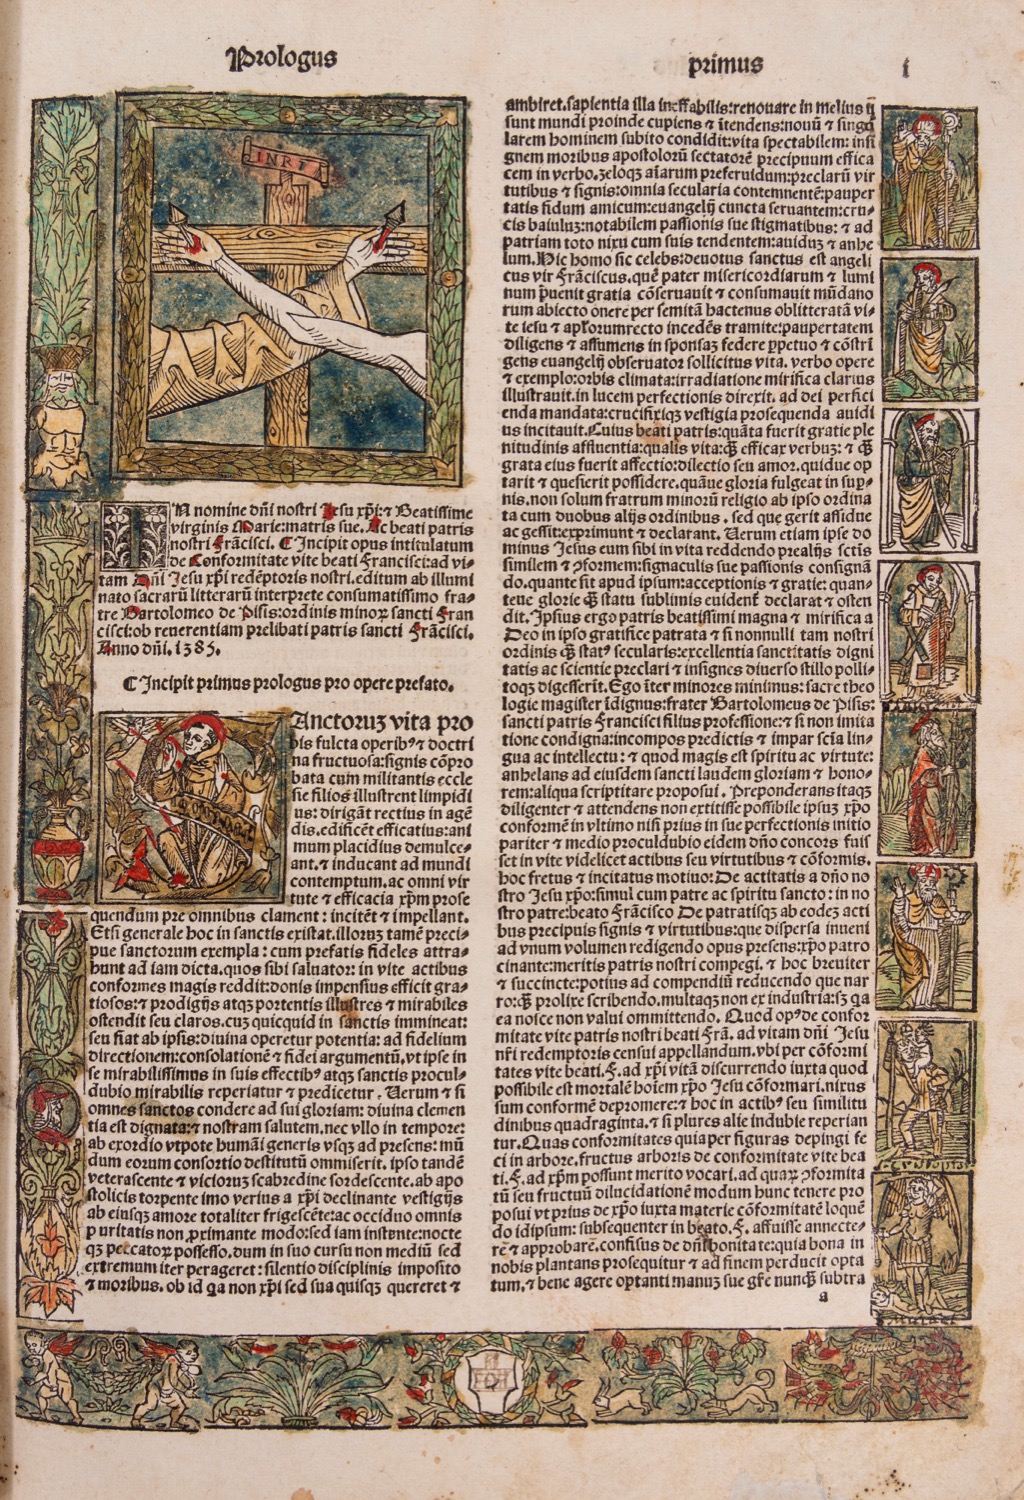 Prologus
primus
i
INRI
IN nomine dñi nostri Jesu xp̄i: ⁊ Beatissime
virginis Marie: matris sue. Ac beati patris
nostri Frãcisci. ¶ Incipit opus intitulatum
de Conformitate vite beati Francisci: ad vi-
tam Dñi Jesu xp̄i redẽptoris nostri. editum ab illumi
nato sacrarũ litterarũ interprete consumatissimo fra-
tre Bartolomeo de Pisis: ordinis minoꝝ sancti Fran
cisci: ob reuerentiam prelibati patris sancti Frãcisci.
Anno dñi. 1385.
¶ Incipit primus prologus pro opere prefato.
Sanctoruꝫ vita pro
bis fulcta operibꝰ ⁊ doctri
na fructuosa: signis cõpro
bata cum militantis eccle
sie filios illustrent limpidi
us: dirigãt rectius in agẽ
dis. edificẽt efficatius: ani
mum placidius demulce-
ant. ⁊ inducant ad mundi
contemptum. ac omni vir
tute ⁊ efficacia xp̄m prose
quendum pre omnibus clament: incitẽt ⁊ impellant.
Etsi generale hoc in sanctis existat. illoruꝫ tamẽ preci-
pue sanctorum exempla: cum prefatis fideles attra-
hunt ad iam dicta. quos sibi saluator: in vite actibus
conformes magis reddit: donis impensius efficit gra-
tiosos: ⁊ prodigijs atqꝫ portentis illustres ⁊ mirabiles
ostendit seu claros. cuꝫ quicquid in sanctis immineat:
seu fiat ab ipsis: diuina operetur potentia: ad fidelium
directionem: consolationẽ ⁊ fidei argumentũ. vt ipse in
se mirabilissimus in suis effectibꝰ atqꝫ sanctis procul-
dubio mirabilis reperiatur ⁊ predicetur. Uerum ⁊ si
omnes sanctos condere ad sui gloriam: diuina clemen
tia est dignata: ⁊ nostram salutem. nec vllo in tempore:
ab exordio vtpote humãi generis vsqꝫ ad presens: mũ
dum eorum consortio destitutũ ommiserit. ipso tandẽ
veterascente ⁊ vicioruꝫ scabredine sordescente. ab apo
stolicis torpente imo verius a xp̄i declinante vestigijs
ab eiusqꝫ amore totaliter frigescẽte: ac occiduo omnis
puritatis non ꝓximante modo: sed iam instante: nocte
qꝫ peccatoꝝ possesso. dum in suo cursu non mediũ sed
extremum iter perageret: silentio disciplinis imposito
⁊ moribus. ob id qa non xp̄i sed sua quisqꝫ quereret ⁊
ambiret. sapientia illa ineffabilis: renouare in melius q̃
sunt mundi proinde cupiens ⁊ ĩtendens: nouũ ⁊ singu
larem hominem subito condidit: vita spectabilem: insi
gnem moribus apostolorũ sectatorẽ precipuum effica
cem in verbo. zeloqꝫ aĩarum preferuidum: preclarũ vir
tutibus ⁊ signis: omnia secularia contemnentẽ: pauper
tatis fidum amicum: euangelij cuncta seruantem: cru-
cis baiuluꝫ: notabilem passionis sue stigmatibus: ⁊ ad
patriam toto nixu cum suis tendentem: auiduꝫ ⁊ anhe
lum. Hic homo sic celebs: deuotus sanctus est angeli
cus vir Frãciscus. quẽ pater misericordiarum ⁊ lumi
num p̃uenit gratia cõseruauit ⁊ consumauit mũdano
rum abiecto onere per semitã hactenus oblitteratã vi-
te iesu ⁊ apl̃orum recto incedẽs tramite: paupertatem
diligens ⁊ assumens in sponsaꝫ federe ꝑpetuo ⁊ cõstri
gens euangelij obseruator sollicitus vita. verbo opere
⁊ exemplo: orbis climata: irradiatione mirifica clarius
illustrauit. in lucem perfectionis direxit. ad dei perfici
enda mandata: crucifixiqꝫ vestigia prosequenda auidi
us incitauit. Cuius beati patris: quãta fuerit gratie ple
nitudinis affluentia: qualis vita: q̃ꝫ efficax verbuꝫ: ⁊ q̃ꝫ
grata eius fuerit affectio: dilectio seu amor. quidue op
tarit ⁊ quesierit possidere. quãue gloria fulgeat in suꝑ-
nis. non solum fratrum minorũ religio ab ipso ordina
ta cum duobus alijs ordinibus. sed que gerit assidue
ac gessit: exprimunt ⁊ declarant. Uerum etiam ipse do
minus Jesus eum sibi in vita reddendo prealijs sctis
similem ⁊ ꝯformem: signaculis sue passionis consignã
do. quante sit apud ipsum: acceptionis ⁊ gratie: quan-
teue glorie q̃ꝫ statu sublimis euidenter declarat ⁊ osten
dit. Ipsius ergo patris beatissimi magna ⁊ mirifica a
Deo in ipso gratifice patrata ⁊ si nonnulli tam nostri
ordinis q̃ꝫ statꝰ secularis: excellentia sanctitatis digni
tatis ac scientie preclari ⁊ insignes diuerso stillo polli-
toqꝫ digesserit. Ego ĩter minores minimus: sacre theo
logie magister ĩdignus: frater Bartolomeus de Pisis:
sancti patris Francisci filius professione: ⁊ si non imita
tione condigna: incompos predictis ⁊ impar scĩa lin-
gua ac intellectu: ⁊ quod magis est spiritu ac virtute:
anhelans ad eiusdem sancti laudem gloriam ⁊ hono-
rem: aliqua scriptitare proposui. Preponderans itaqꝫ
diligenter ⁊ attendens non extitisse possibile ipsuꝫ xp̄o
conformẽ in vltimo nisi prius in sue perfectionis initio
pariter ⁊ medio proculdubio eidem dño concors fuis
set in vite videlicet actibus seu virtutibus ⁊ cõformis.
hoc fretus ⁊ incitatus motiuo: De actitatis a dño no
stro Jesu xp̄o: simul cum patre ac spiritu sancto: in no
stro patre: beato Frãcisco De patratisqꝫ ab eodeꝫ acti
bus precipuis signis ⁊ virtutibus: que dispersa inueni
ad vnum volumen redigendo opus presens: xp̄o patro
cinante: meritis patris nostri compegi. ⁊ hoc breuiter
⁊ succincte: potius ad compendiũ reducendo que nar
ro: q̃ꝫ prolixe scribendo. multaqꝫ non ex industria: sꝫ qa
ea nosce non valui ommittendo. Quod opꝰ de confor
mitate vite patris nostri beati Frã. ad vitam dñi Jesu
nr̃i redemptoris censui appellandum. vbi per cõformi
tates vite beati. F. ad xp̄i vitã discurrendo iuxta quod
possibile est mortalẽ hoĩem xp̄o Jesu cõformari. nixus
sum conformẽ depromere: ⁊ hoc in actibꝰ seu similitu
dinibus quadraginta. ⁊ si plures alie indubie reperian
tur. Quas conformitates quia per figuras depingi fe
ci in arbore. fructus arboris de conformitate vite bea
ti. F. ad xp̄m possunt merito vocari. ad quaꝝ ꝯformita
tũ seu fructuũ dilucidationẽ modum hunc tenere pro
posui vt prius de xp̄o iuxta materie cõformitatẽ loquẽ
do idipsum: subsequenter in beato. F. affuisse annecte-
rẽ ⁊ approbare. confisus de dñi bonitate: quia bona in
nobis plantans prosequitur ⁊ ad finem perducit opta
tum. ⁊ bene agere optanti manuꝫ sue gr̃e nunq̃ꝫ subtra
a